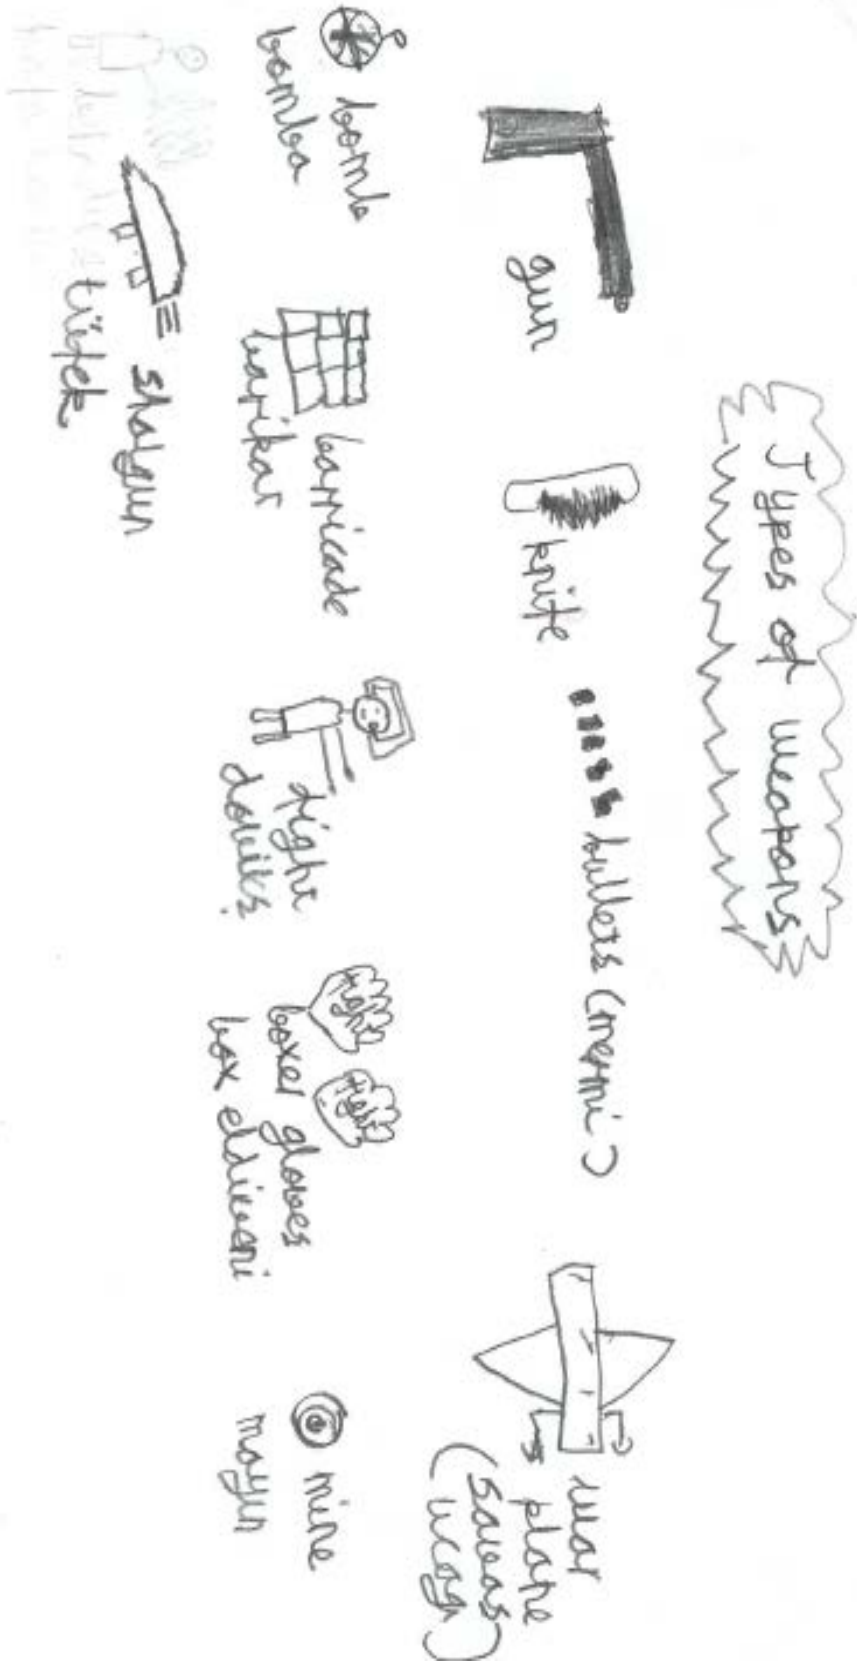 Types of weapons
gun
knife
bullets (mermi)
war
plane
(savas
ucagı)
bomb
bomba
barricade
barikat
fight
dövüş
fight
fight
boxer gloves
box eldiveni
mine
mayın
shotgun
tüfek